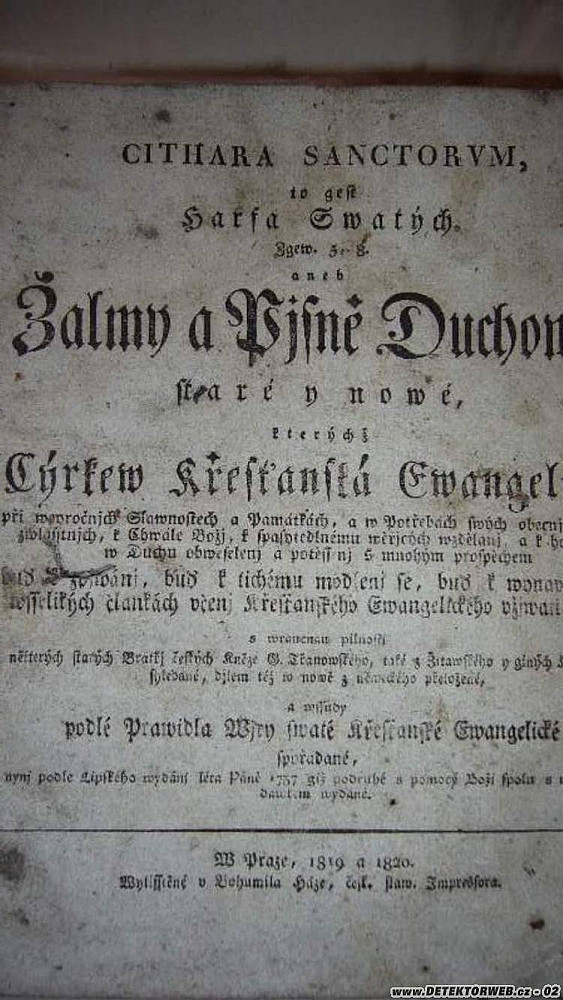 CITHARA SANCTORVM,
to gest
Harfa Swatých.
Zgew. 5, 8.
aneb
Žalmy a Pjsně Duchow
staré y nowé,
kterýchž
Cýrkew Křesťanská Ewangel
při weyročnjch Slawnostech a Památkách, a w Potřebách swých obecnj
zwlásstnjch, k Chwále Božj, k spasytedlnému wěrjcých wzdělanj, a k
w Duchu obweselenj a potěssenj s mnohým prospěchem
buď k tichému modlenj se, buď k
wsselikých člankách včenj Křesťanského Ewangelického vžjwa
s wraucnau pilnostj
některých starých Bratřj českých Kněze G. Třanowského, také z Žitawského y giných
syledané, djlem též w nowě z německého přeložené,
a wssudy
podlé Prawidla Wjry swaté Křesťanské Ewangelické
spořádané,
nynj podle Lipského wydánj léta Páně 1737 giž podruhé s pomocý Božj spolu s
dawkem wydané.
W Praze, 1819 a 1820.
Wytisstěné v Bohumila Háze, česk. staw. Impressora.
www.DETEKTORWEB.cz - 02